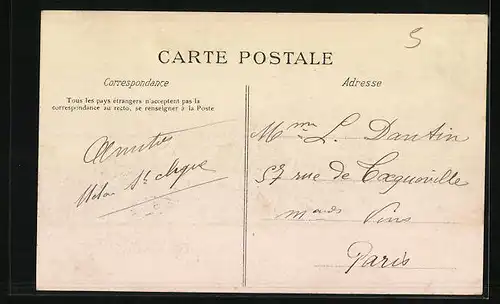 5
CARTE POSTALE
Correspondance
Adresse
Tous les pays étrangers n'acceptent pas la
correspondance au recto, se renseigner à la Poste
Amitiés
Mme L. Dantin
57 rue de Tocqueville
Mands Vins
Paris